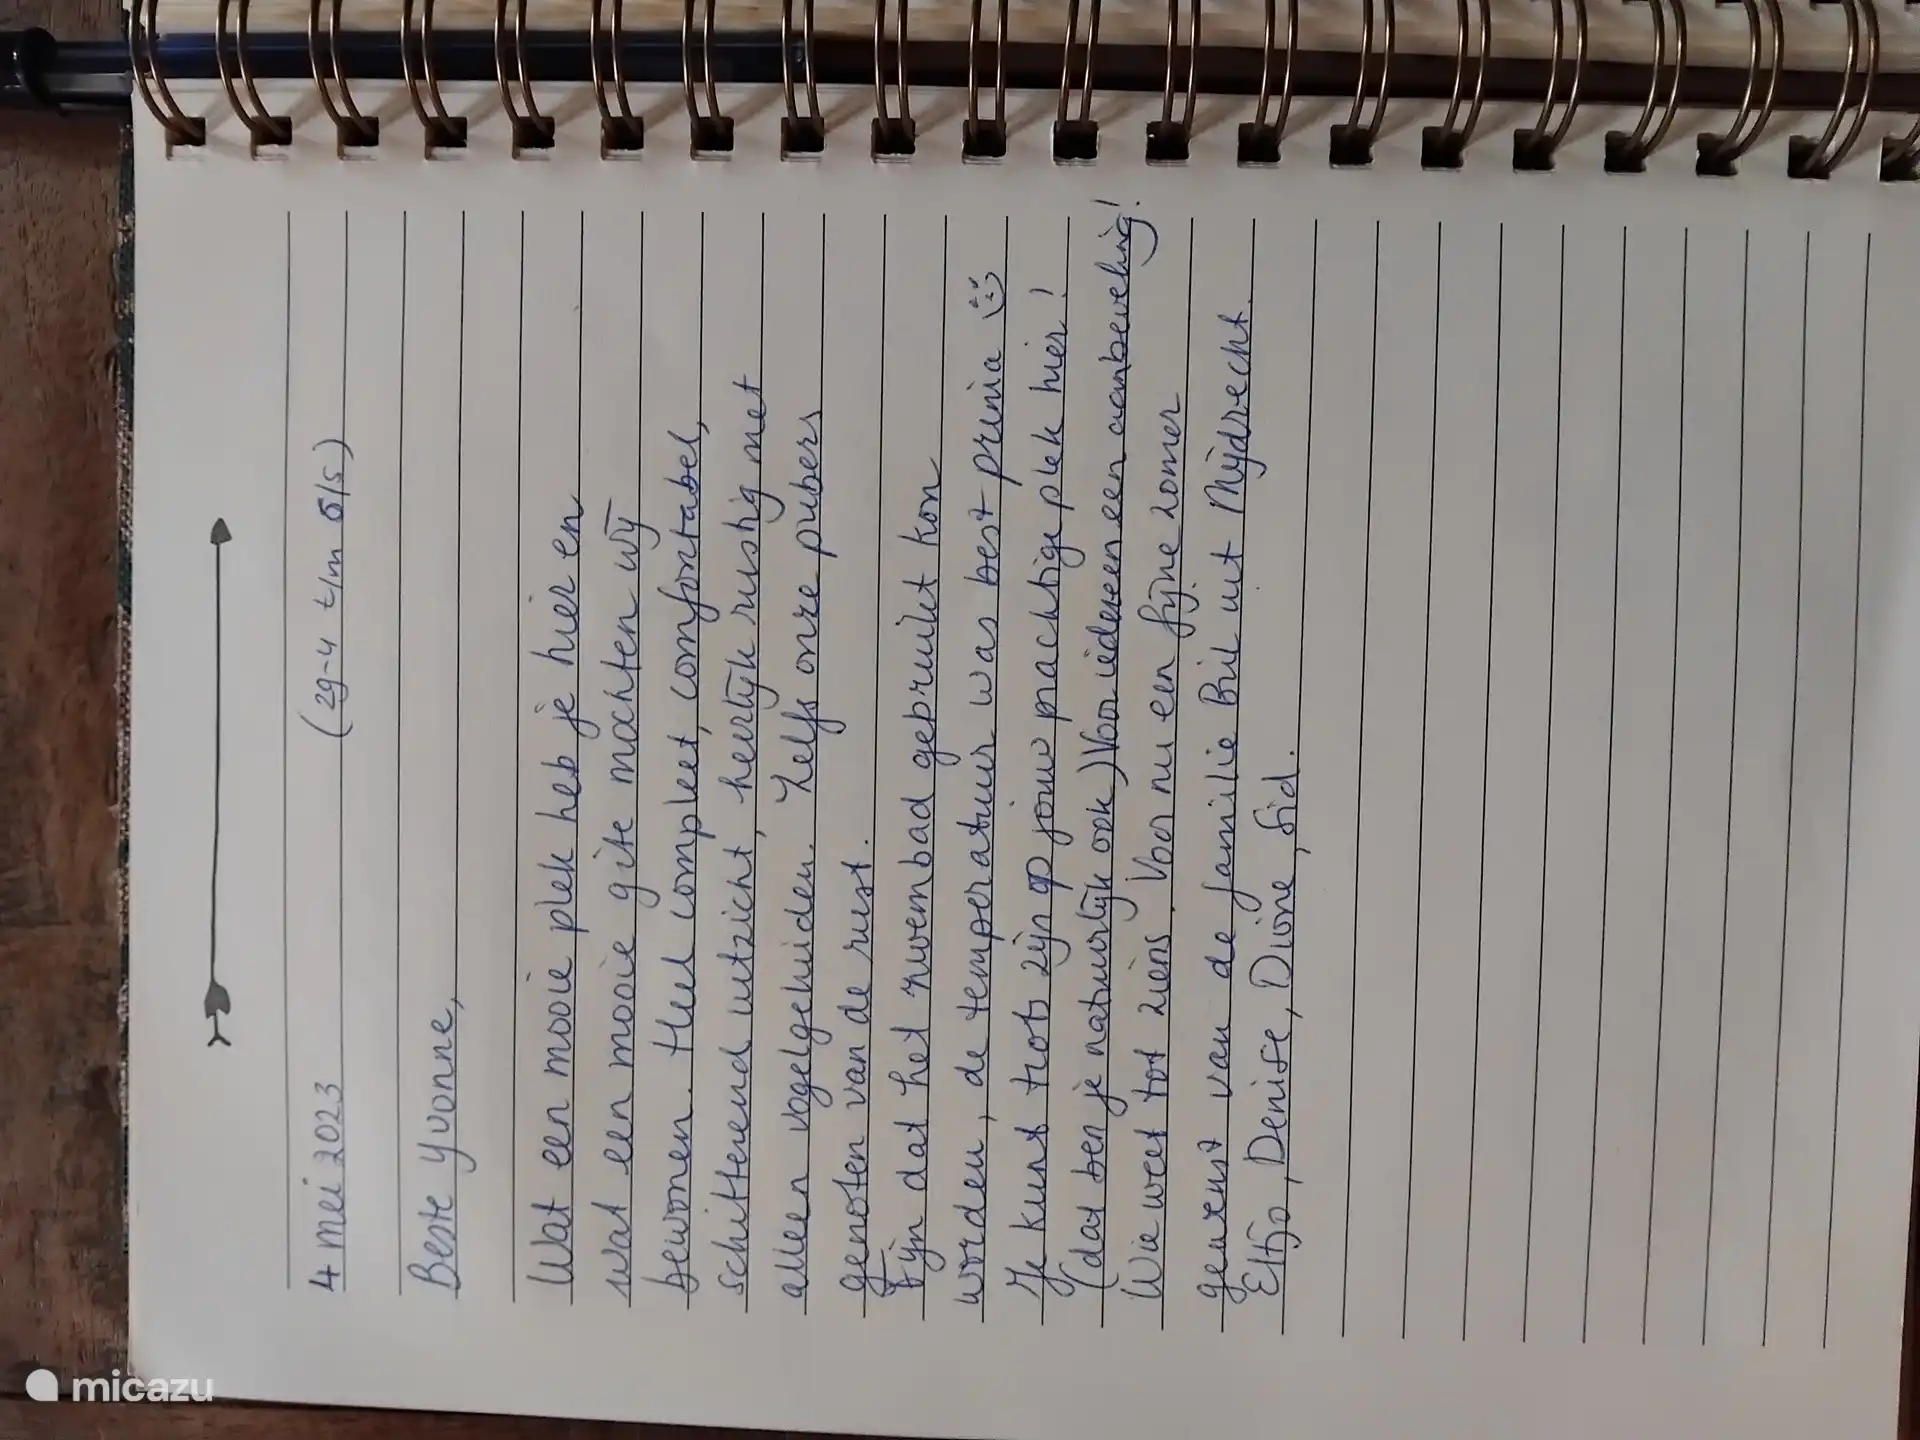 4 mei 2023 (29-4 t/m 6/5)
Beste Yvonne,
Wat een mooie plek heb je hier en
wat een mooie gîte mochten wij
bewonen. Heel compleet, comfortabel,
schitterend uitzicht, heerlijk rustig met
alleen vogelgeluiden. Zelfs onze pubers
genoten van de rust.
Fijn dat het zwembad gebruikt kon
worden, de temperatuur was best prima
Je kunt trots zijn op jouw prachtige plek hier!
(dat ben je natuurlijk ook) Voor iedereen een aanbeveling!
Wie weet tot ziens. Voor nu een fijne zomer
gewenst van de familie Bril uit Mijdrecht.
Denise, Dione, Sid.
micazu